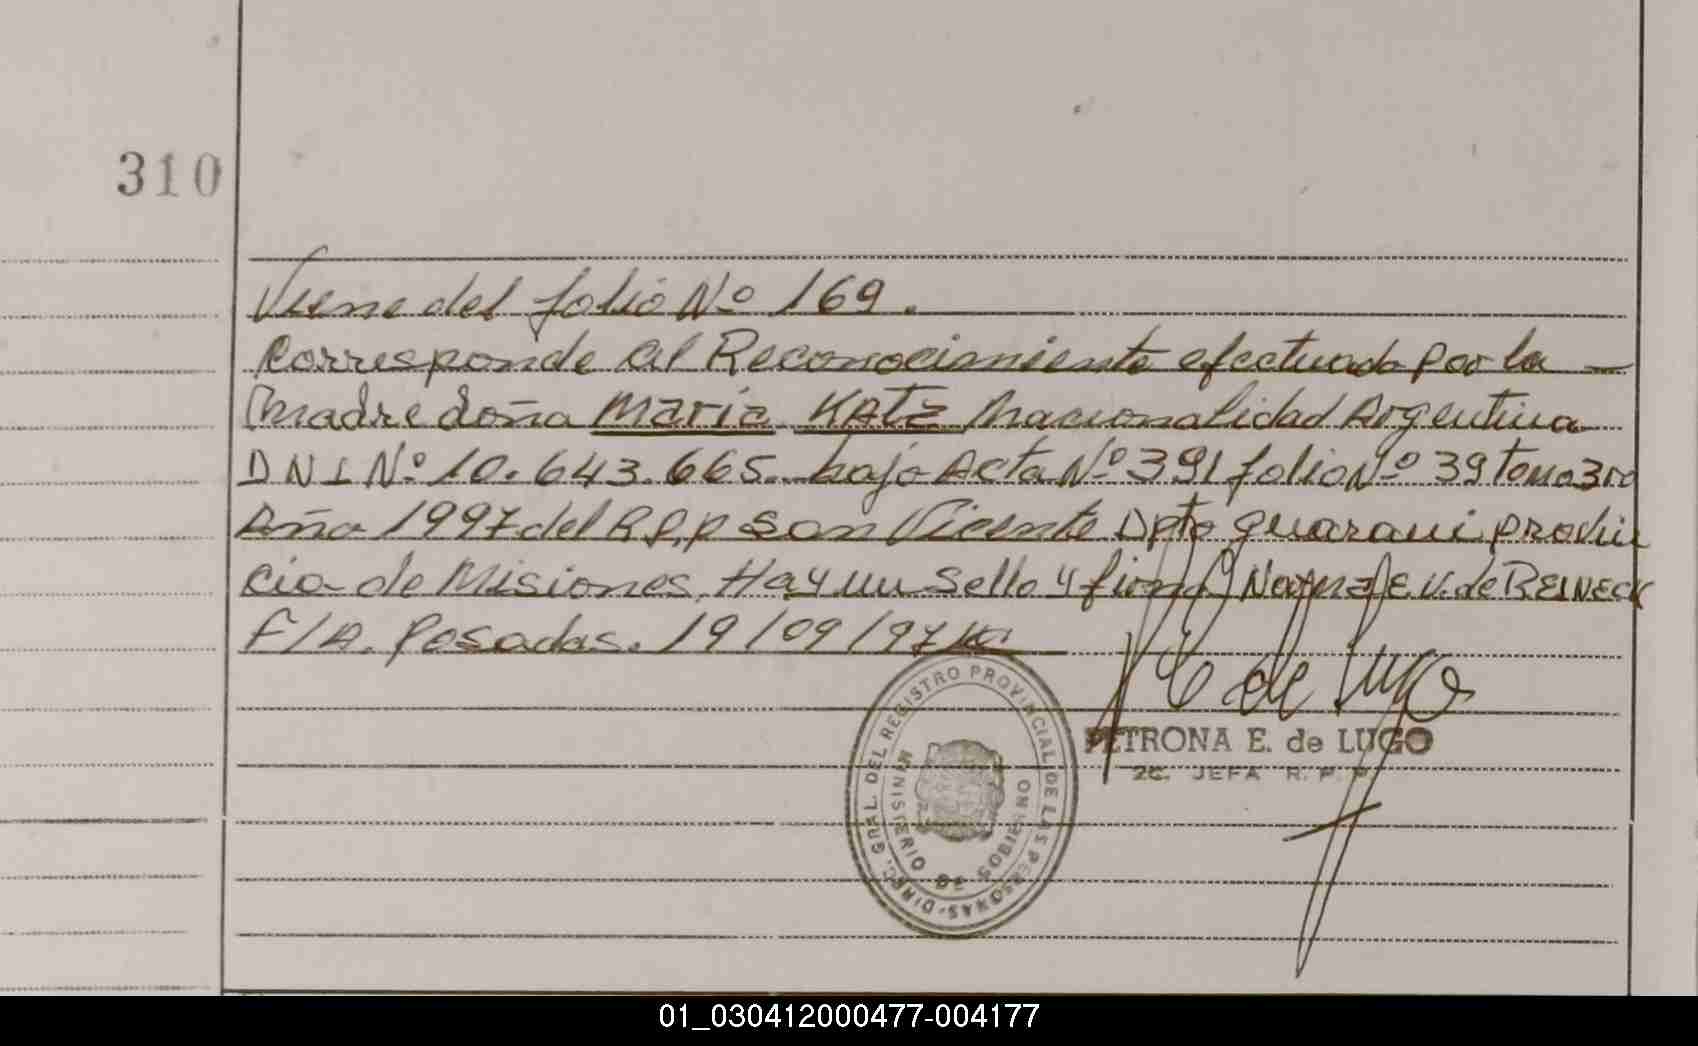 310
Viene del folio Nº 169.
Corresponde al Reconocimiento efectuado por la
Madre doña Maria KATZ Nacionalidad Argentina
DNI Nº 10.643.665. bajo Acta Nº 391 folio Nº 39 tomo 3ro
Año 1997 del R.P.P San Vicente Dpto Guarani Provin
cia de Misiones. Hay un Sello y firma E. V. de REINECK
F/A. Posadas. 19/09/97
E de Lugo
PETRONA E. de LUGO
2C. JEFA R. P. P.
DIREC. GRAL. DEL REGISTRO PROVINCIAL DE LAS PERSONAS
MINISTERIO DE GOBIERNO
01_030412000477-004177